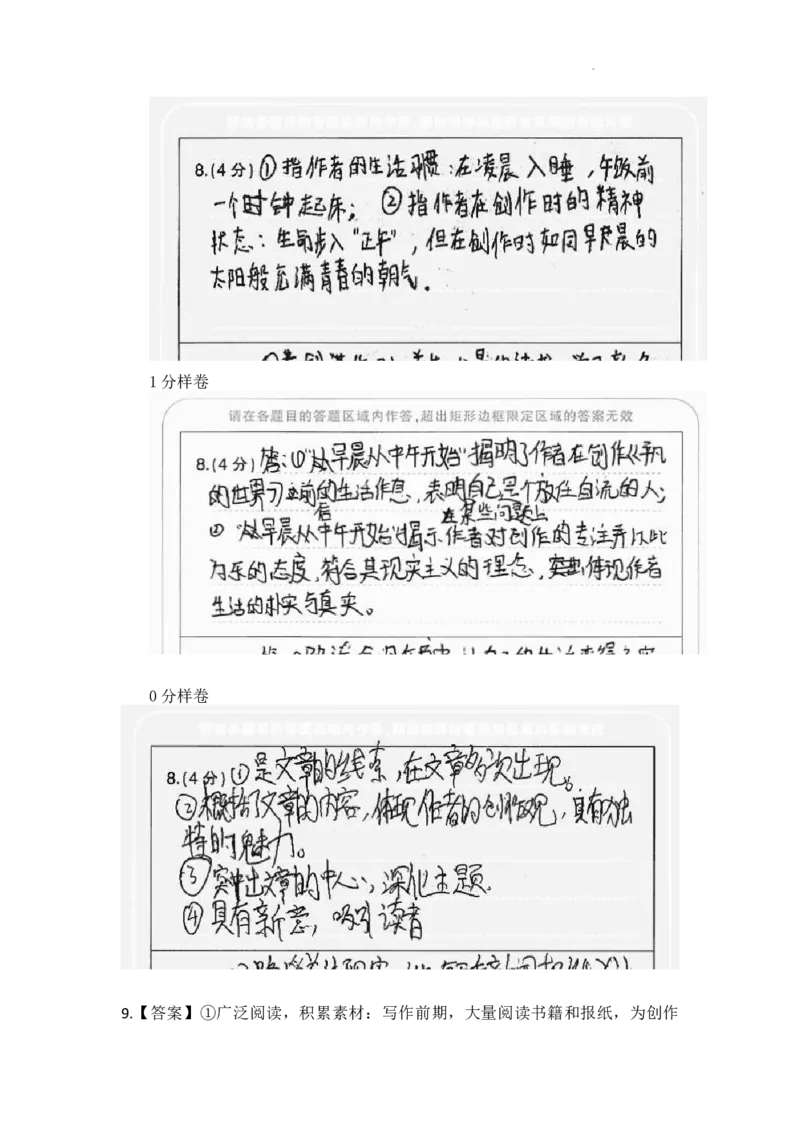 8.(4分)①指作者的生活习惯:在凌晨入睡,午饭前
一个时钟起床;②指作者在创作时的精神
状态:生命步入“正午”,但在创作时如同早晨的
太阳般充满青春的朝气。
1 分样卷
请在各题目的答题区域内作答,超出矩形边框限定区域的答案无效
8.(4分)答:①“从早晨从中午开始”揭明了作者在创作《平凡
的世界》之前的生活作息,表明自己是个放任自流的人;
后
在某些问题上
②“从早晨从中午开始”揭示作者对创作的专注并以此
为乐的态度,符合其现实主义的理念,突出体现作者
生活的朴实与真实。
0 分样卷
8.(4分)①是文章的线索,在文章多次出现。
②概括了文章的内容,体现作者的创作观,具有独
特的魅力。
③突出文章的中心,深化主题.
④具有新意,吸引读者
9.【答案】①广泛阅读,积累素材:写作前期,大量阅读书籍和报纸,为创作